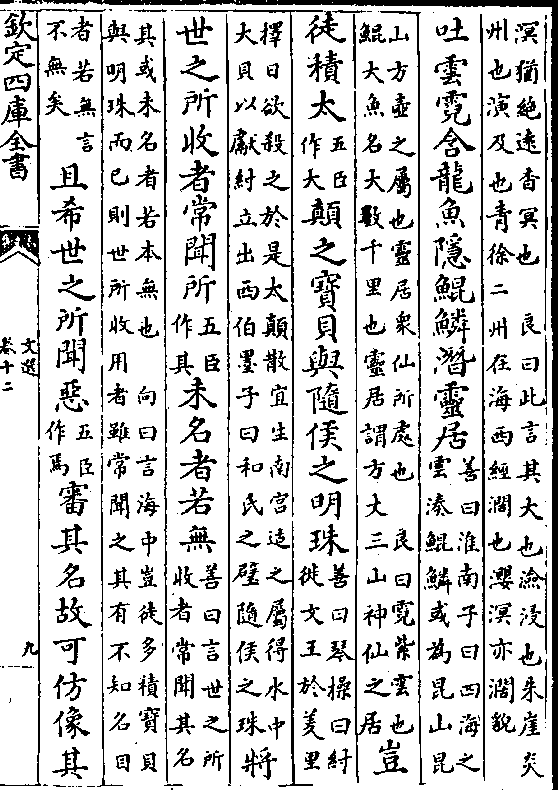 溟猶絶逺杳冥也　良曰此言其大也淪没也朱崖炎
州也演及也青徐二州在海西經濶也瀴溟亦濶貌
吐雲霓含龍魚隱鯤鱗潛靈居
善曰淮南子曰四海之
雲湊鯤鱗或為昆山昆
山方壺之屬也靈居衆仙所處也　良曰霓紫雲也
鯤大魚名大數千里也靈居謂方丈三山神仙之居
豈
徒積太
五臣
作大
顛之寶貝與隨侯之明珠
善曰琴操曰紂
徙文王於羑里
擇日欲殺之於是太顛散宜生南宫适之屬得水中
大貝以獻紂立出西伯墨子曰和氏之璧隨侯之珠
將
世之所收者常聞所
五臣
作其
未名者若無
善曰言世之所
收者常聞其名
其或未名者若本無也　向曰言海中豈徒多積寶貝
與明珠而已則世所收用者雖常聞之其有不知名目
者若無言
不無矣
且希世之所聞惡
五臣
作焉
審其名故可仿像其
欽定四庫全書
文選
卷十二
九